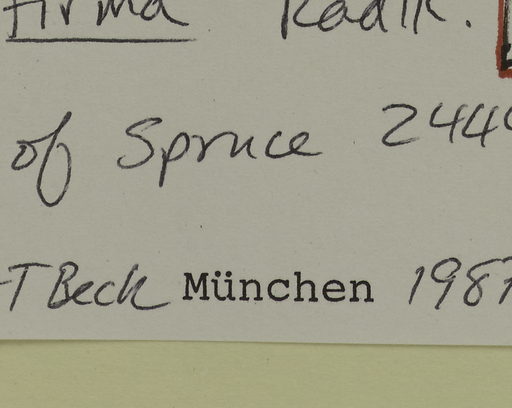 firma Radlk.
of Spruce 244
T Beck München 1987